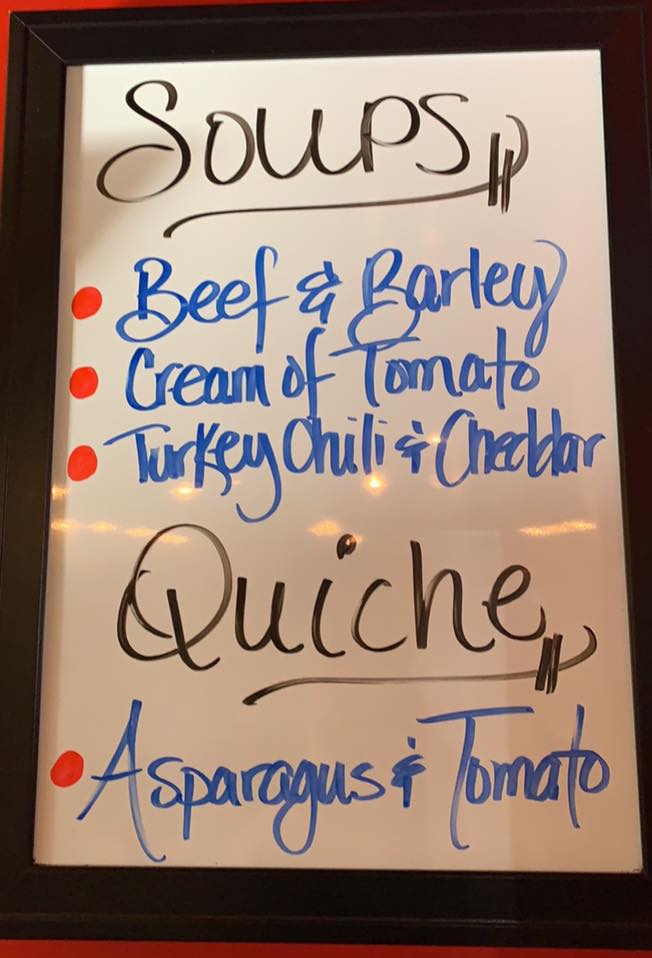 Soups
Beef & Barley
Cream of Tomato
Turkey Chili & Cheddar
Quiche
Asparagus & Tomato